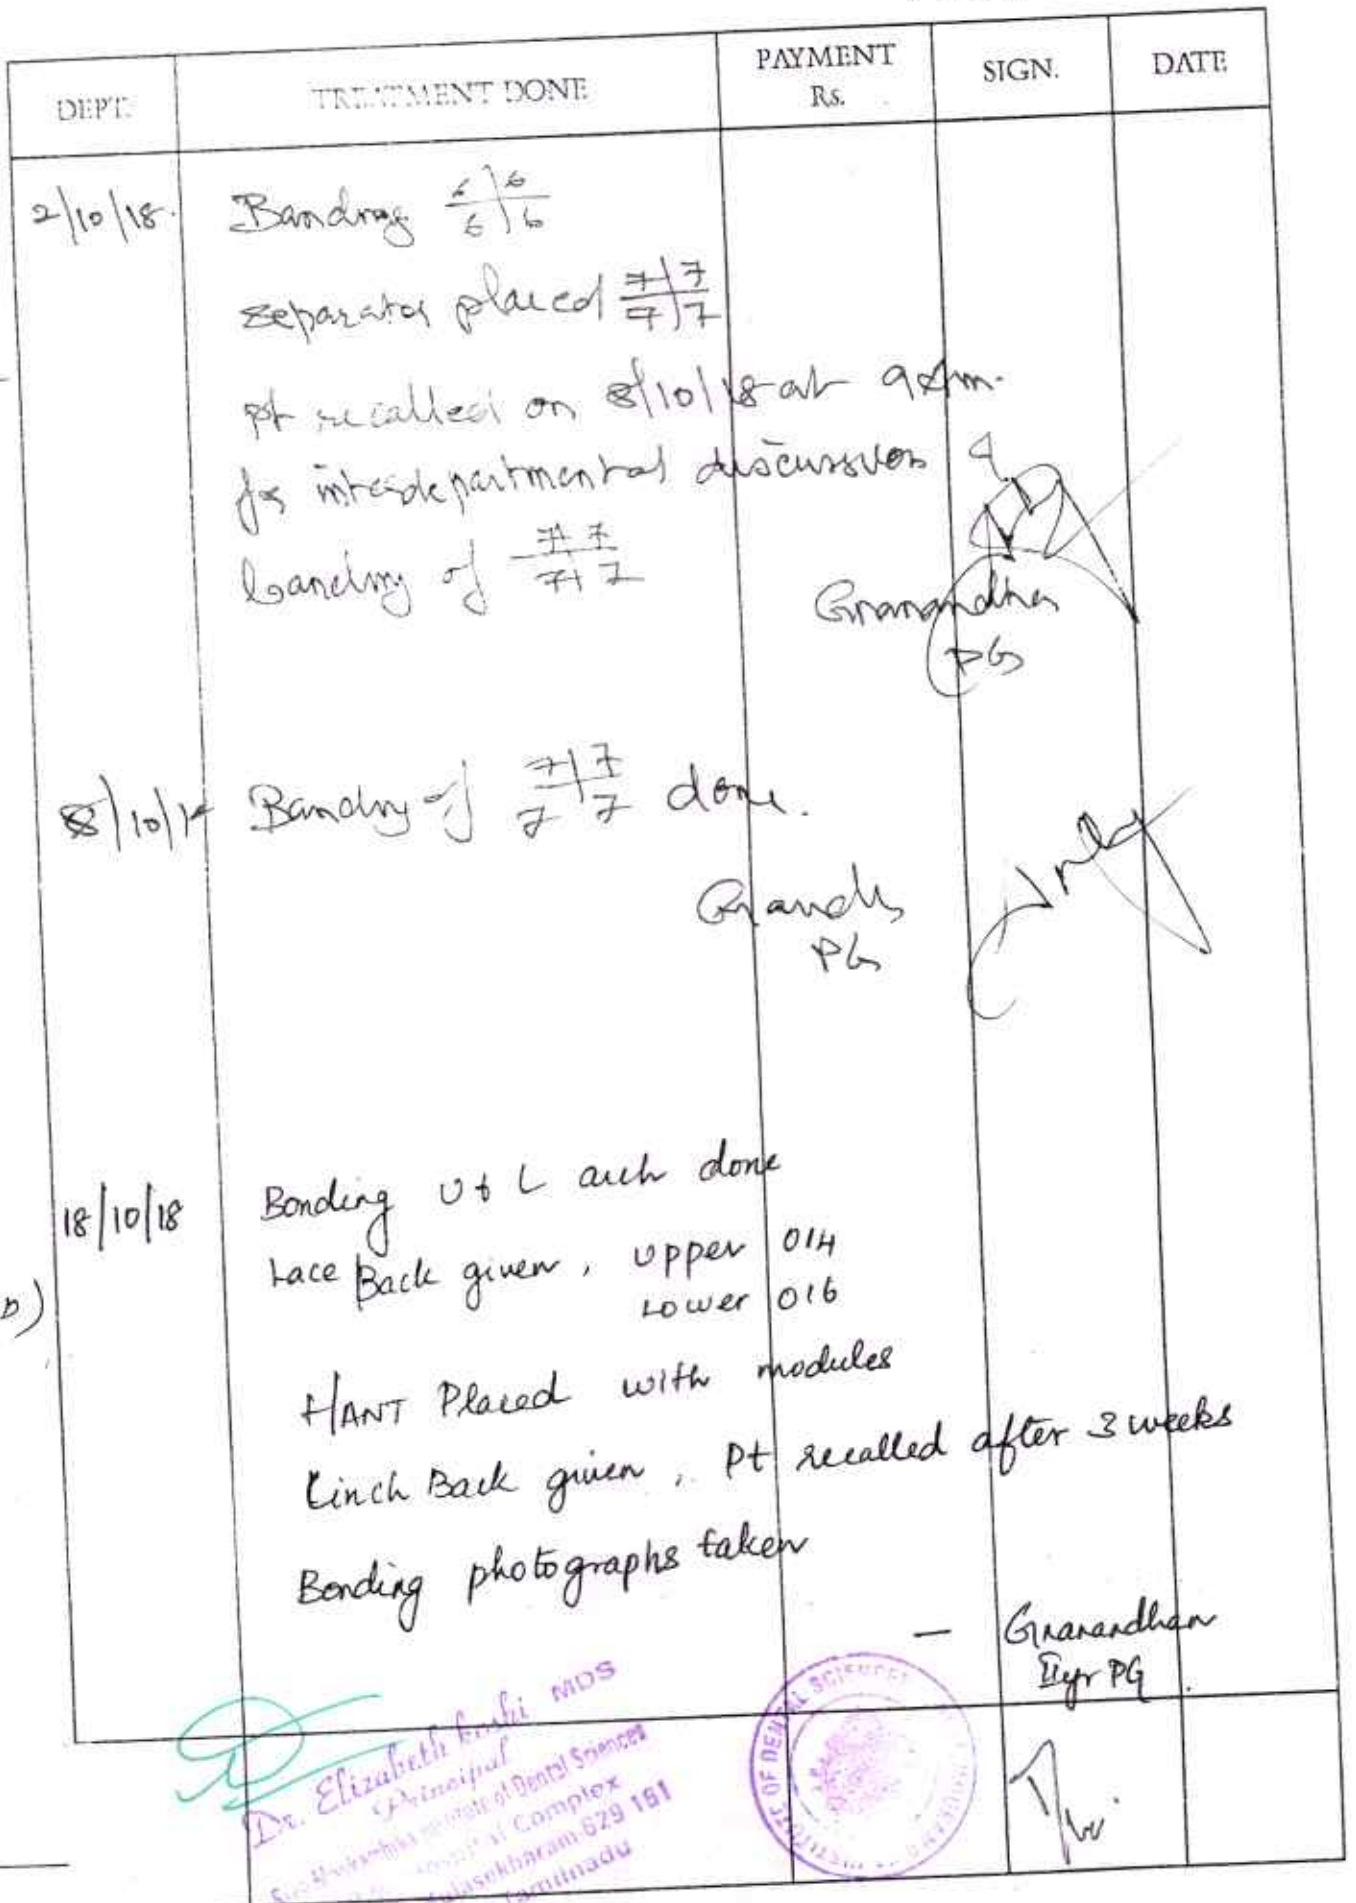 DEPT. TREATMENT DONE PAYMENT Rs. SIGN. DATE
2/10/18. Banding 6|6 / 6|6
separator placed 7|7 / 7|7
pt recalled on 8/10/18 at 9 Am.
for interdepartmental discussion &
banding of 7|7 / 7|7
Gnanandhan
PG
8/10/18 Banding of 7|7 / 7|7 done.
PG
18/10/18 Bonding U & L arch done
Lace Back given, upper 014
Lower 016
HANT Placed with modules
Cinch Back given, Pt recalled after 3 weeks
Bonding photographs taken
— Gnanandhan
IIyr PG.
Dr. Elizabeth Koshi MDS
Principal
Institute of Dental Sciences
Complex
Kulasekharam-629 161
Tamilnadu
INSTITUTE OF DENTAL SCIENCES